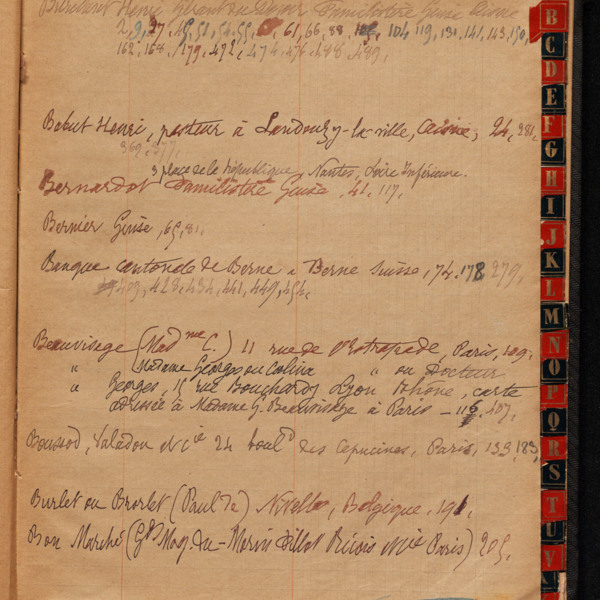 Henri Gérant du Familistère Guise Aisne
2, 9, 27, 45, 51, 54, 55, 61, 66, 88, 104, 119, 131, 141, 143, 150,
162, 168, 179, 492, 474, 476, 488, 489,
Babut Henri, pasteur à Landouzy-la-ville, Aisne, 24, 281,
369, 377,
3 place de la république Nantes, Loire Inférieure.
Bernardot Familistère Guise, 41, 117.
Bernier Guise, 69, 81.
Banque cantonale de Berne à Berne Suisse, 74, 178, 279,
409, 428, 434, 441, 449, 454,
Beauvisage (Mad me C.) 11 rue de l'Estrapade, Paris, 109,
" Madame Georges ou Colina " ou Docteur
" Georges, 15 rue Bouchardy Lyon Rhône, carte
adressée à Madame G. Beauvisage à Paris - 115, 407,
Boussod, Valadon & Cie 24 boul d des Capucines, Paris, 133, 183,
Burlet ou Brorlet (Paul de) Nivelles, Belgique, 191,
Bon Marché (Gds Mag. du - Morin Fillot Ricois & Cie Paris) 205,
B
C
D
E
F
G
H
I
J
K
L
M
N
O
P
Q
R
S
T
U
V